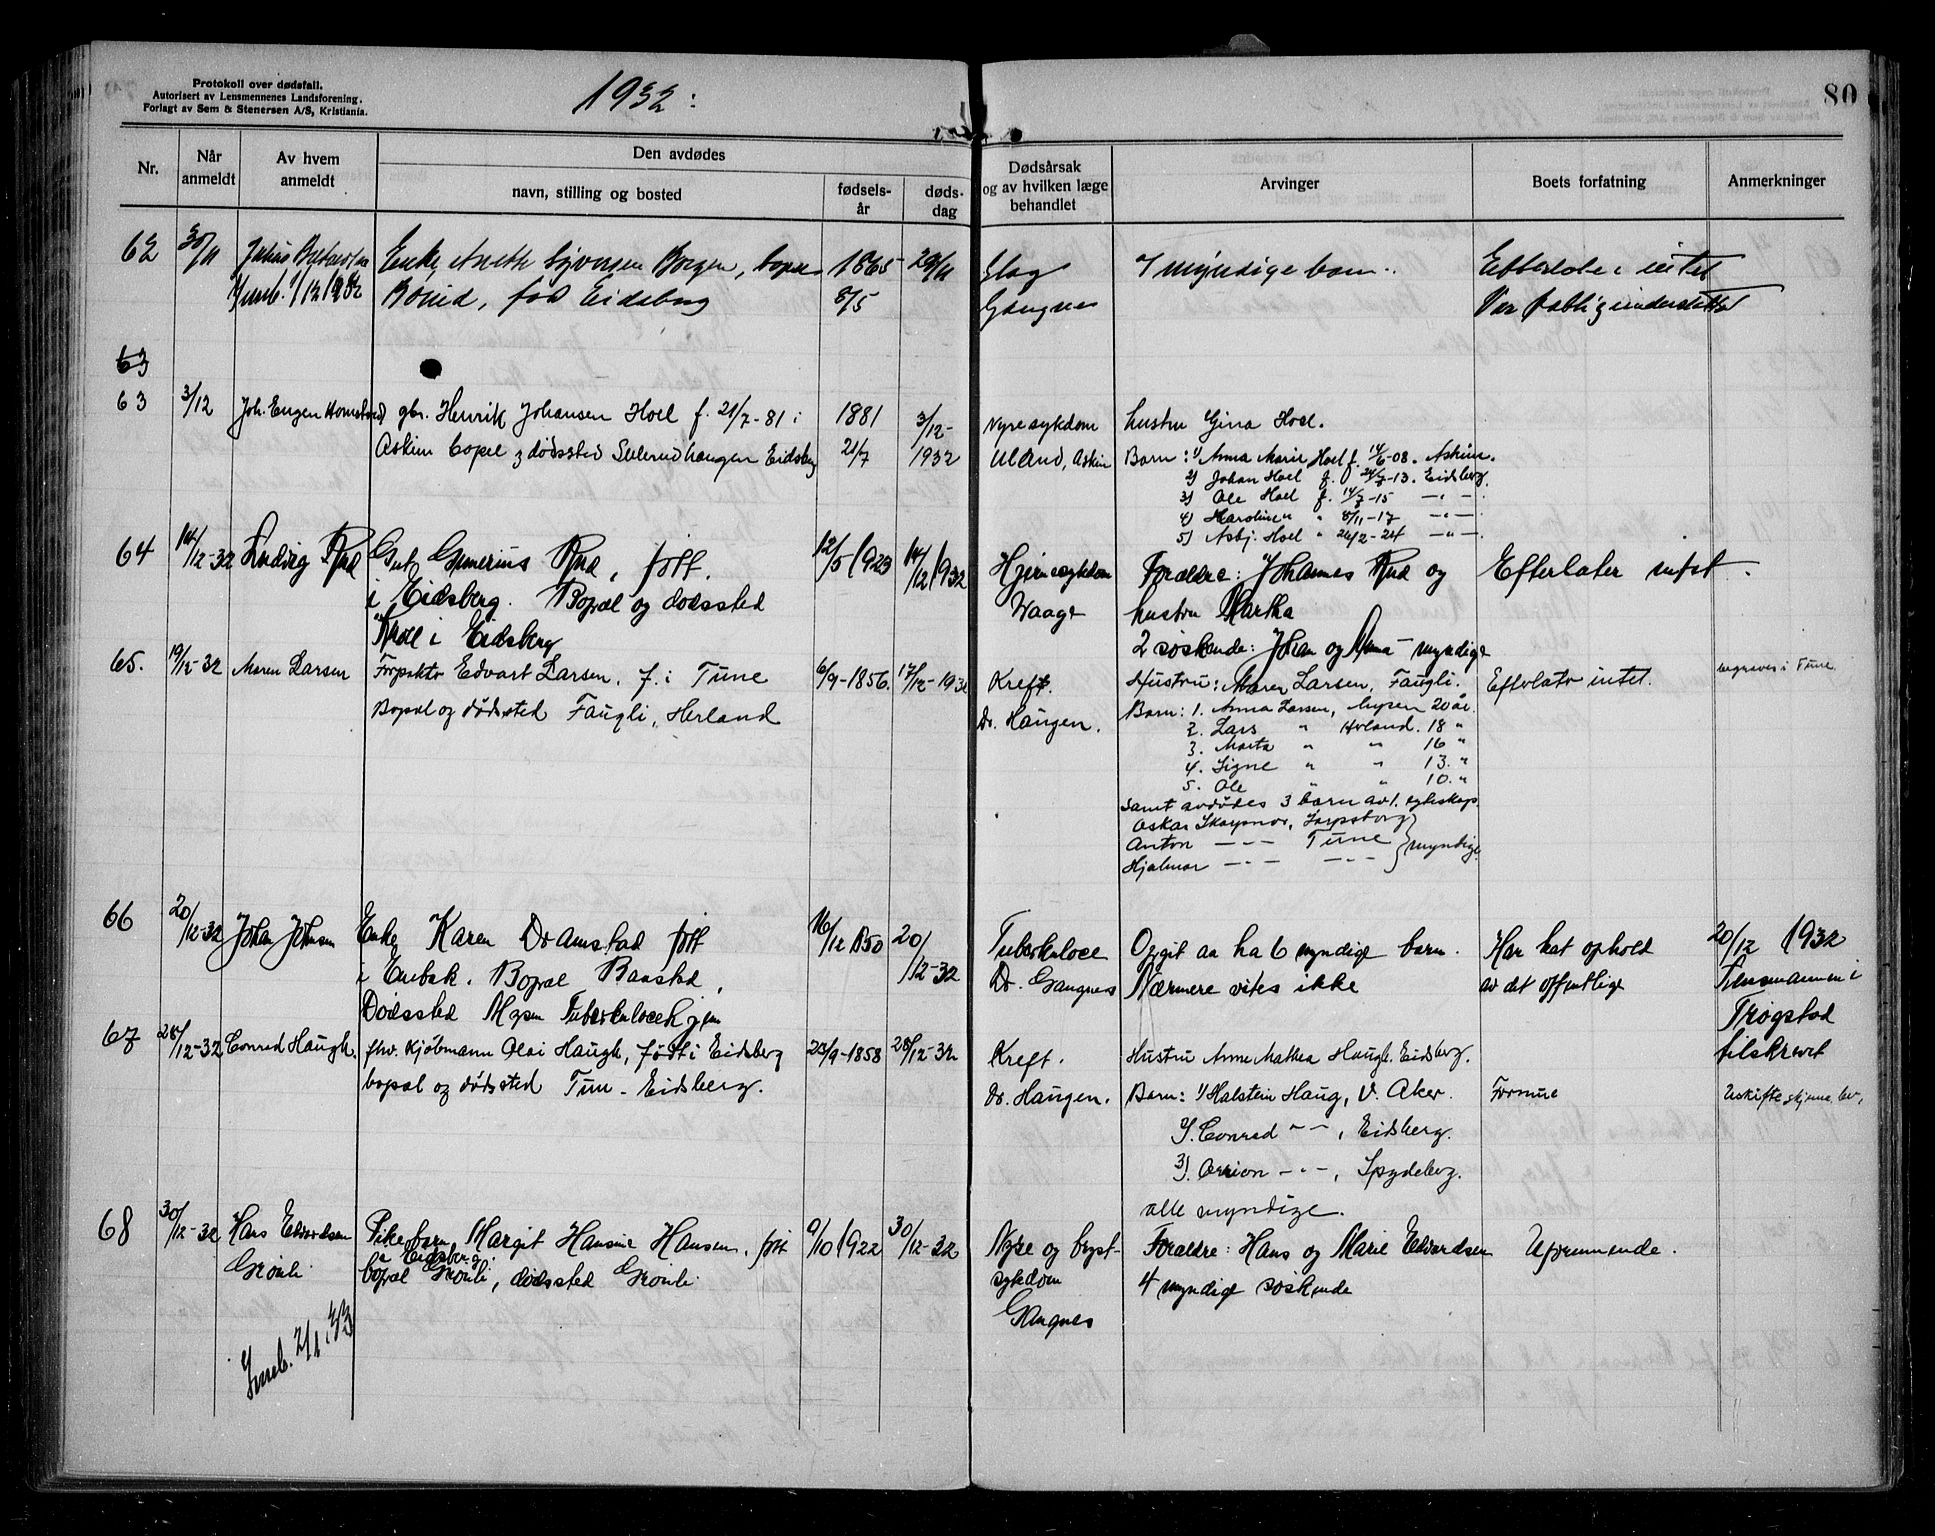 Protokoll over dødsfall.
Autorisert av Lensmennenes Landsforening.
Forlagt av Sem & Stenersen A/S, Kristiania.
1932:
80
Nr.
Når anmeldt
Av hvem anmeldt
Den avdødes
navn, stilling og bosted
fødselsår
dødsdag
Dødsårsak og av hvilken læge behandlet
Arvinger
Boets forfatning
Anmerkninger
62 30/11 Enke Borgen, 1865 29/11 Slag 7 myndige barn.. intet
1/12 1932 fød Eidsberg 8/5 Gangnes Var
63
63 3/12 Joh. Engen Homstvedt gbr. Henrik Johansen Hoel f. 21/7-81 i 1881 3/12- Nyresykdom hustru Gina Hoel.
Askim bopel og dødssted Eidsberg 21/7 1932 Uland, Askim Barn: 1) Anna Marie Hoel f. 14/6-08. Askim.
2) Johan Hoel f. -13. Eidsberg.
3) Ole Hoel f. 14/7-15 -"-
4) Karoline " " 8/11-17 -"-
5) Asbj. Hoel " 26/2-24 -"-
64 14/12-32 Ludvig Rud Gut Gunerius Rud, født 12/5 1923 14/12 1932 Hjernesykdom Forældre: Johannes Rud og Efterlater intet.
i Eidsberg. Bopæl og dødssted Waage hustru Martha
i Eidsberg 2 søskende: Johan og Anna - myndige
65. 19/12-32 Maren Larsen Forpakter Edvart Larsen, f. i Tune 6/9-1856. 17/12-1932 Kreft. Hustru: Maren Larsen, Faugli. Efterlater intet. begraves i Tune.
Bopæl og dødsted Faugli, Herland Dr. Haugen. Barn: 1. Anna Larsen, Mysen 20 år.
2. Lars " Herland. 18 "
3. Marta " " 16 "
4. Signe " " 13. "
5. Ole " " 10. "
Samt avdødes 3 barn av 1. egteskap.
Oskar Skarpnor, Sarpsborg
Anton -"- Tune } myndige
Hjalmar -"- -"-
66 20/12-32 Johan Johnsen Enke Karen Dramstad født 16/12 1850 20/12-32 Tuberkulose Opgit aa ha 6 myndige barn. Har hat ophold 20/12 1932
i Enebak. Bopæl Baastad, Dr. Gangnes Nærmere vites ikke av det offentlige Lensmannen i
Dødssted Mysen Tuberkulosehjem Trøgstad
tilskrevet
67 28/12-32 Conrad Haugh. fhv. Kjøbmann Olai Haugh, født i Eidsberg 23/9-1858 28/12-32 Kreft. Hustru Anne Mathea Haugh. Eidsberg.
bopæl og dødsted Tun - Eidsberg. Dr. Haugen. Barn: 1) Halstein Haug, V. Aker. Formue Uskifte
2). Conrad -"-, Eidsberg.
3). -"-, Spydeberg.
alle myndige.
68 30/12-32 Hans Edvardsen Pikebarn Margit Hansine Hansen, født 9/10 1922 30/12-32 Nyre og bryst- Forældre: Hans og Marie Edvardsen Uformuende.
Grønli i Eidsberg
bopæl Grønli, dødssted Grønli sykdom 4 myndige søskende
Gangnes
Innb. 2/1 33